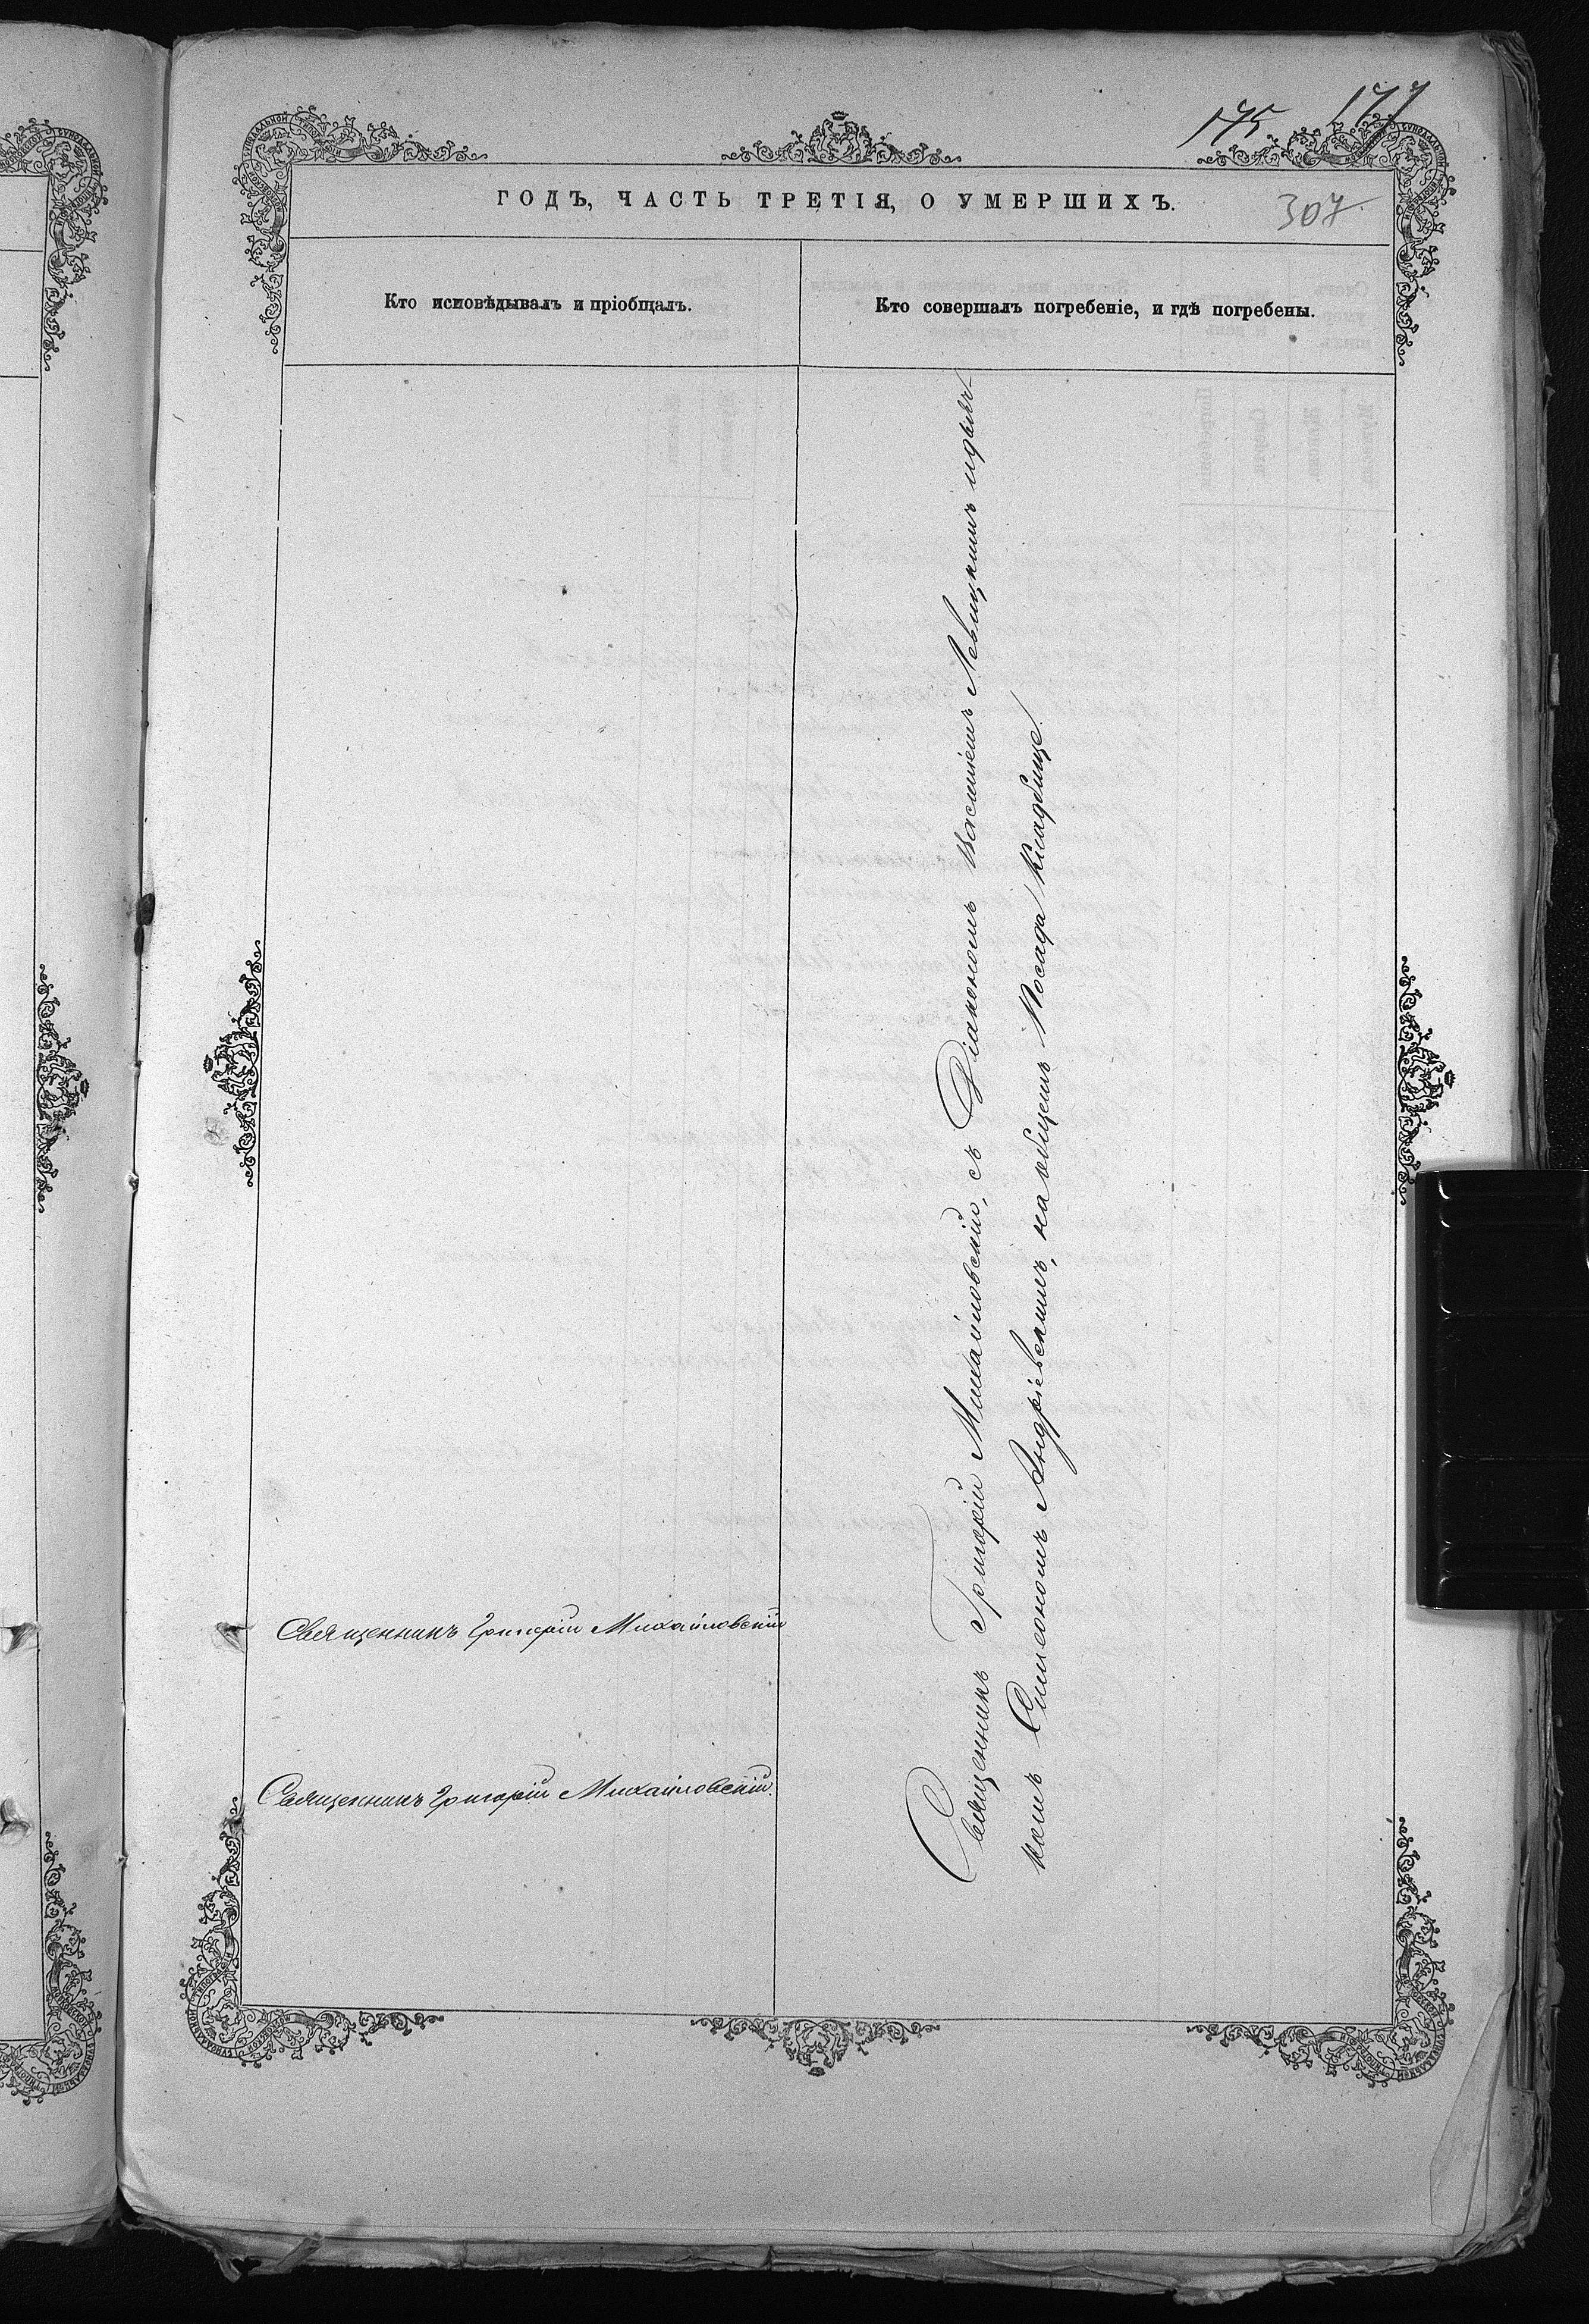 175 177
ГОДЪ, ЧАСТЬ ТРЕТІЯ, О УМЕРШИХЪ.
307
Кто исповѣдывалъ и пріобщалъ.
Кто совершалъ погребеніе, и гдѣ погребены.
Священникъ Григорій Михайловскій, съ Діакономъ Василіемъ Левицкимъ и дьяч-
комъ Симеономъ Андріевскимъ, на общемъ Посада Кладбище
Священникъ Григорій Михайловскій
Священникъ Григорій Михайловскій.